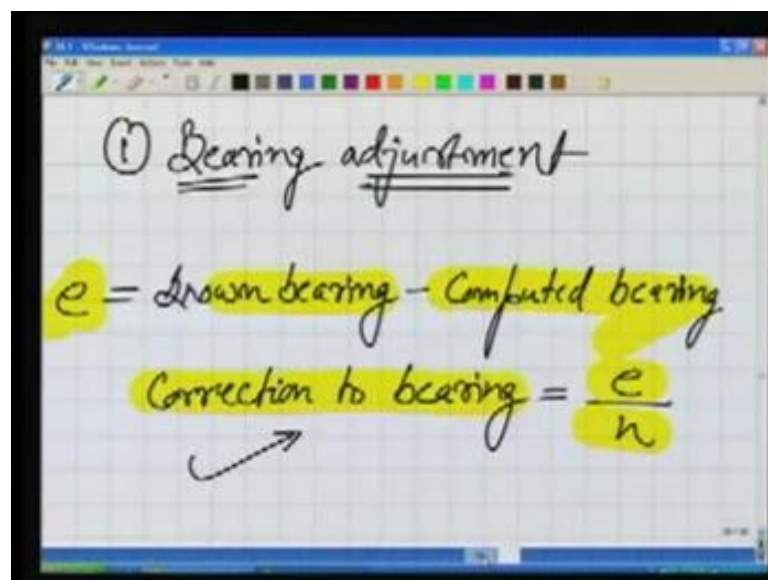 ① Bearing adjustment
e = known bearing - Computed bearing
Correction to bearing = e/n